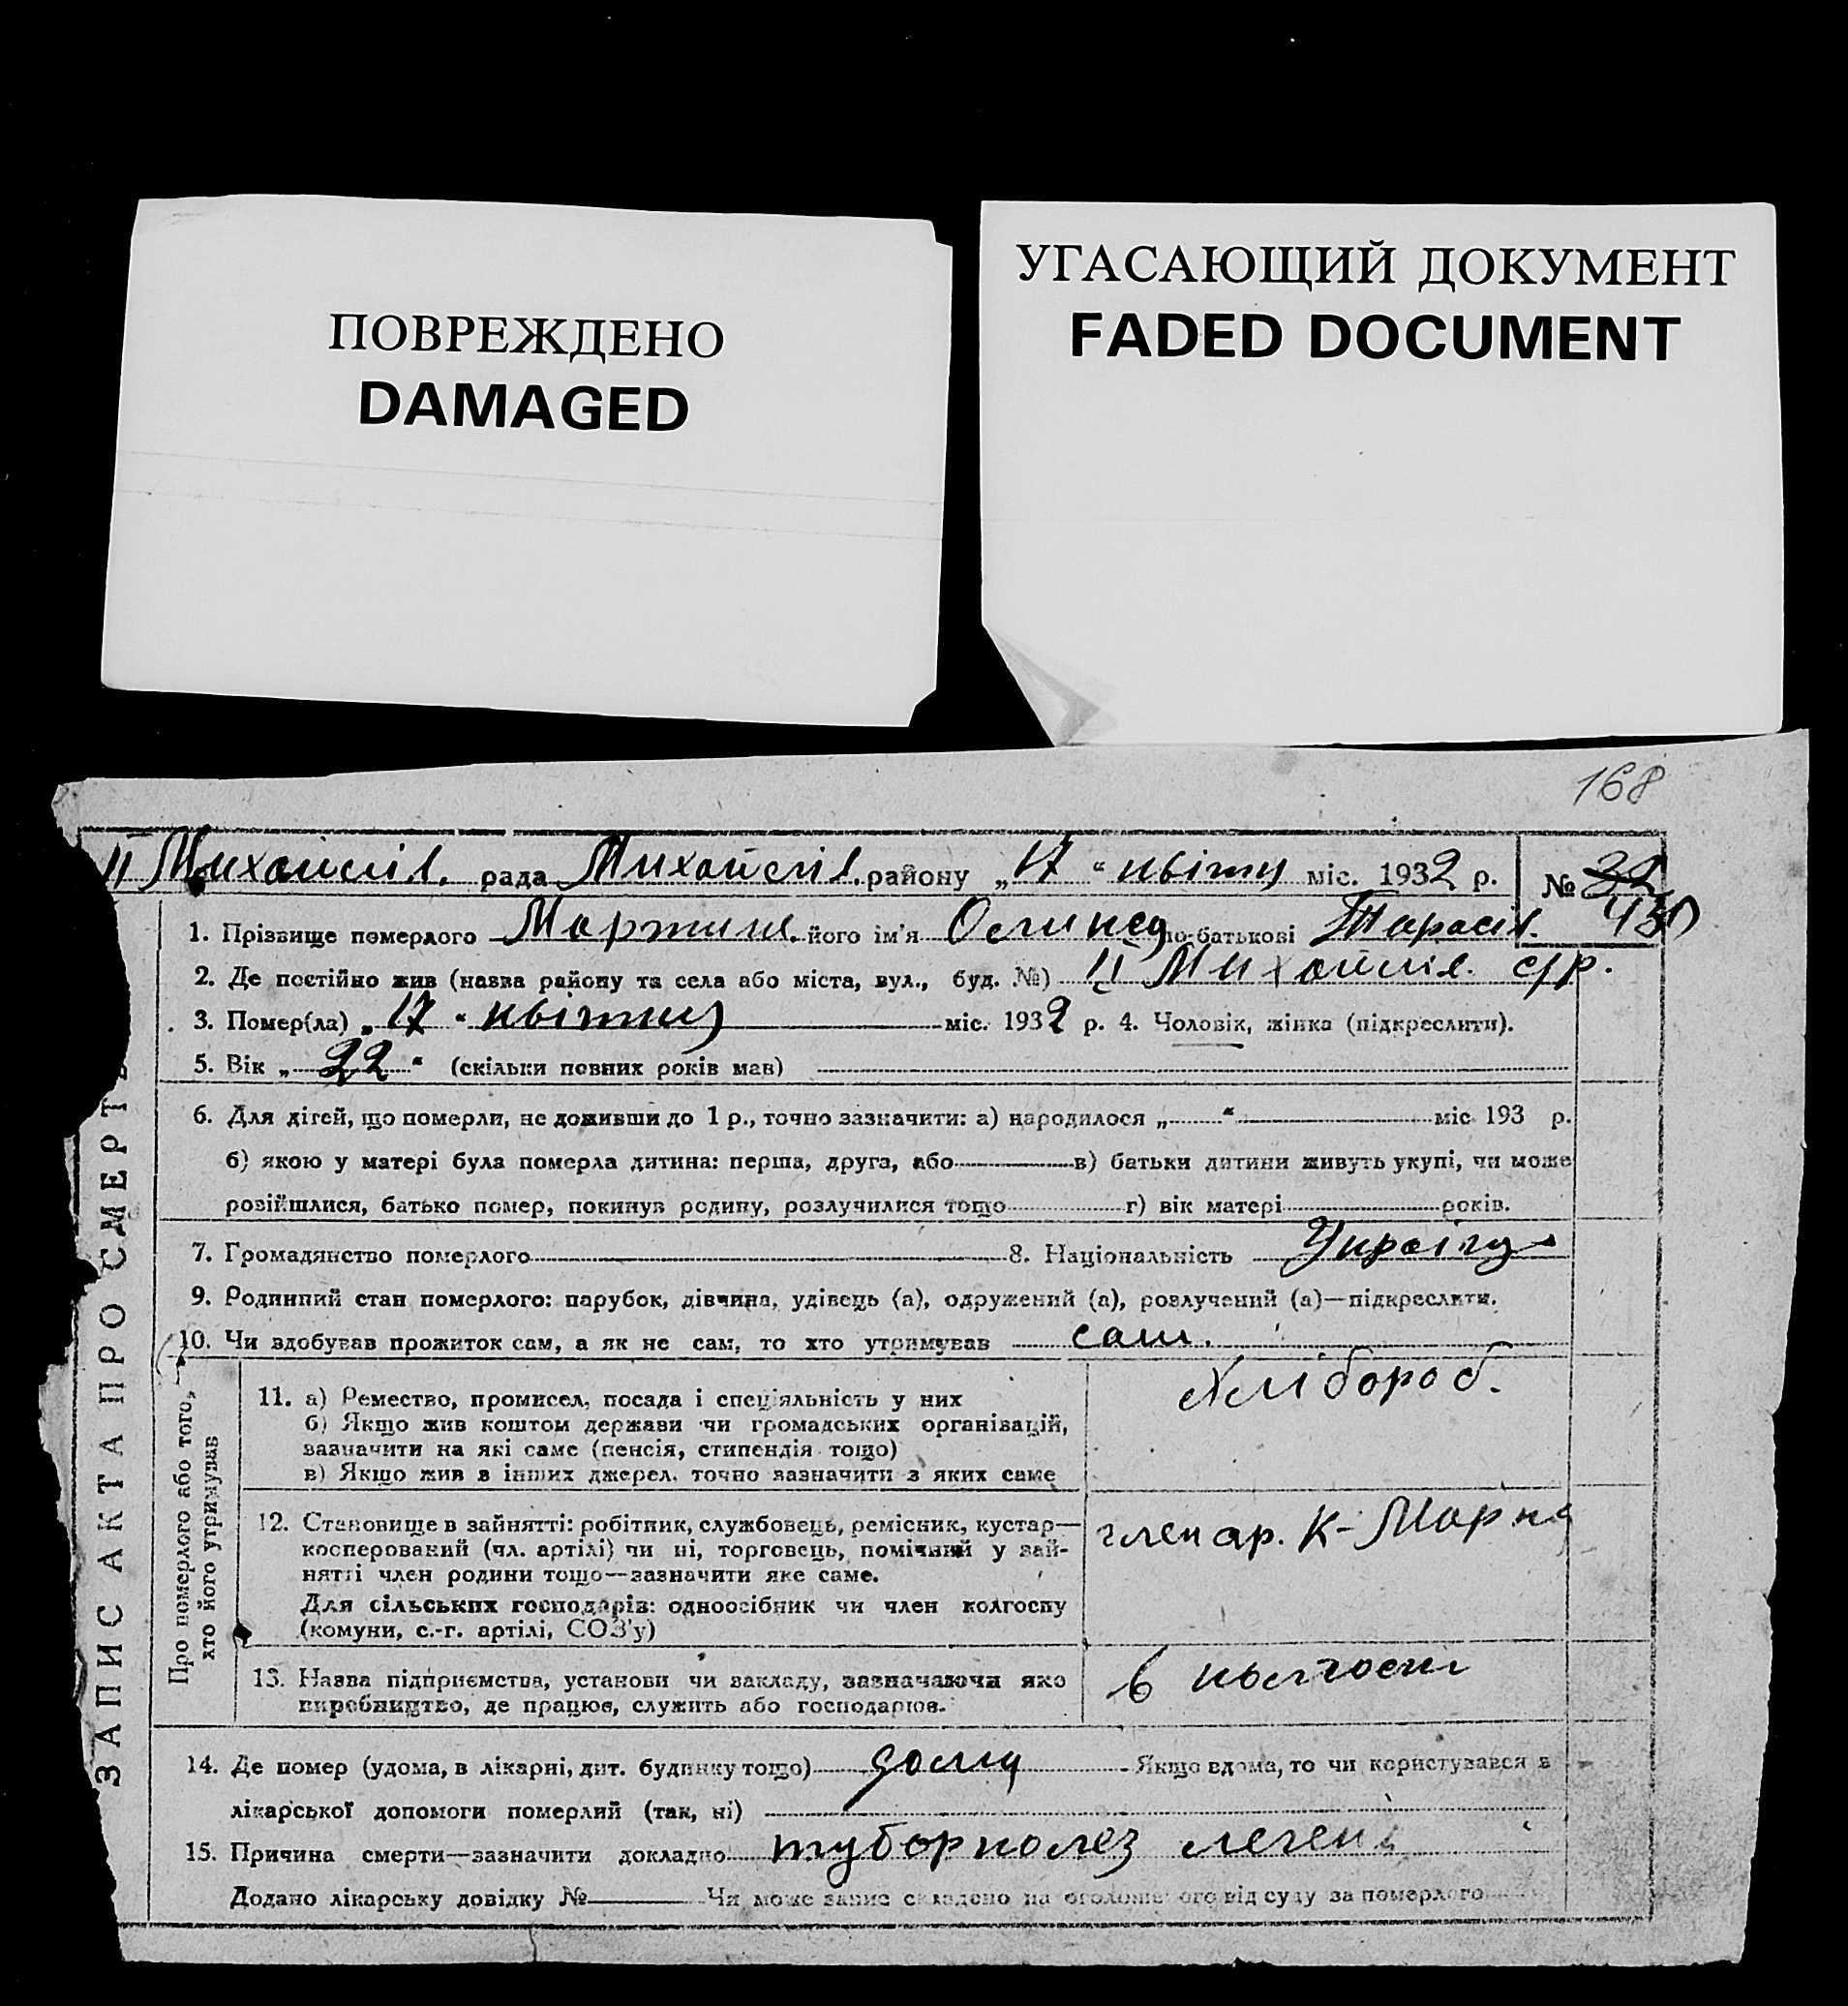 ПОВРЕЖДЕНО
DAMAGED
УГАСАЮЩИЙ ДОКУМЕНТ
FADED DOCUMENT
168
ІІ Михайлів. рада Михайлів. району „17“ квітня міс. 1932 р. № 32
430
1. Прізвище померлого його ім'я по-батькові Тарасів.
2. Де постійно жив (назва району та села або міста, вул., буд. №) ІІ Михайлів. с/р.
3. Помер(ла) „17“ квітня міс. 1932 р. 4. Чоловік, жінка (підкреслити).
5. Вік „22“ (скільки повних років мав)
6. Для дітей, що померли, не доживши до 1 р., точно зазначити: а) народилося „ “ міс. 193 р.
б) якою у матері була померла дитина: перша, друга, або в) батьки дитини живуть укупі, чи може
розійшлися, батько помер, покинув родину, розлучилися тощо г) вік матері років.
7. Громадянство померлого 8. Національність
9. Родинний стан померлого: парубок, дівчина, удівець (а), одружений (а), розлучений (а)—підкреслити.
10. Чи здобував прожиток сам, а як не сам, то хто утримував сам.
Про померлого або того,
хто його утримував
11. а) Ремество, промисел, посада і спеціяльність у них
б) Якщо жив коштом держави чи громадських організацій,
зазначити на які саме (пенсія, стипендія тощо)
в) Якщо жив з інших джерел, точно зазначити з яких саме
хлібороб.
12. Становище в зайнятті: робітник, службовець, ремісник, кустар—
косперований (чл. артілі) чи ні, торговець, помічний у зай-
нятті член родини тощо—зазначити яке саме.
Для сільських господарів: одноосібник чи член колгоспу
(комуни, с.-г. артілі, СОЗ'у)
член ар. К-Маркса
13. Назва підприємства, установи чи закладу, зазначаючи яко
виробництво, де працює, служить або господарює.
в колгоспі
14. Де помер (удома, в лікарні, дит. будинку тощо) дома Якщо вдома, то чи користувався з
лікарської допомоги померлий (так, ні)
15. Причина смерти—зазначити докладно туборкольоз легень
Додано лікарську довідку № Чи може запис складено на оголошеного від суду за померлого
ЗАПИС АКТА ПРО СМЕРТЬ